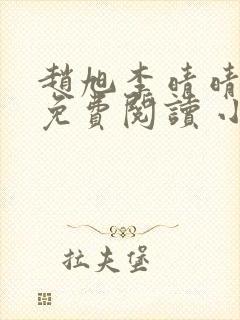 趙旭李晴晴
免費閱讀小
拉夫堡